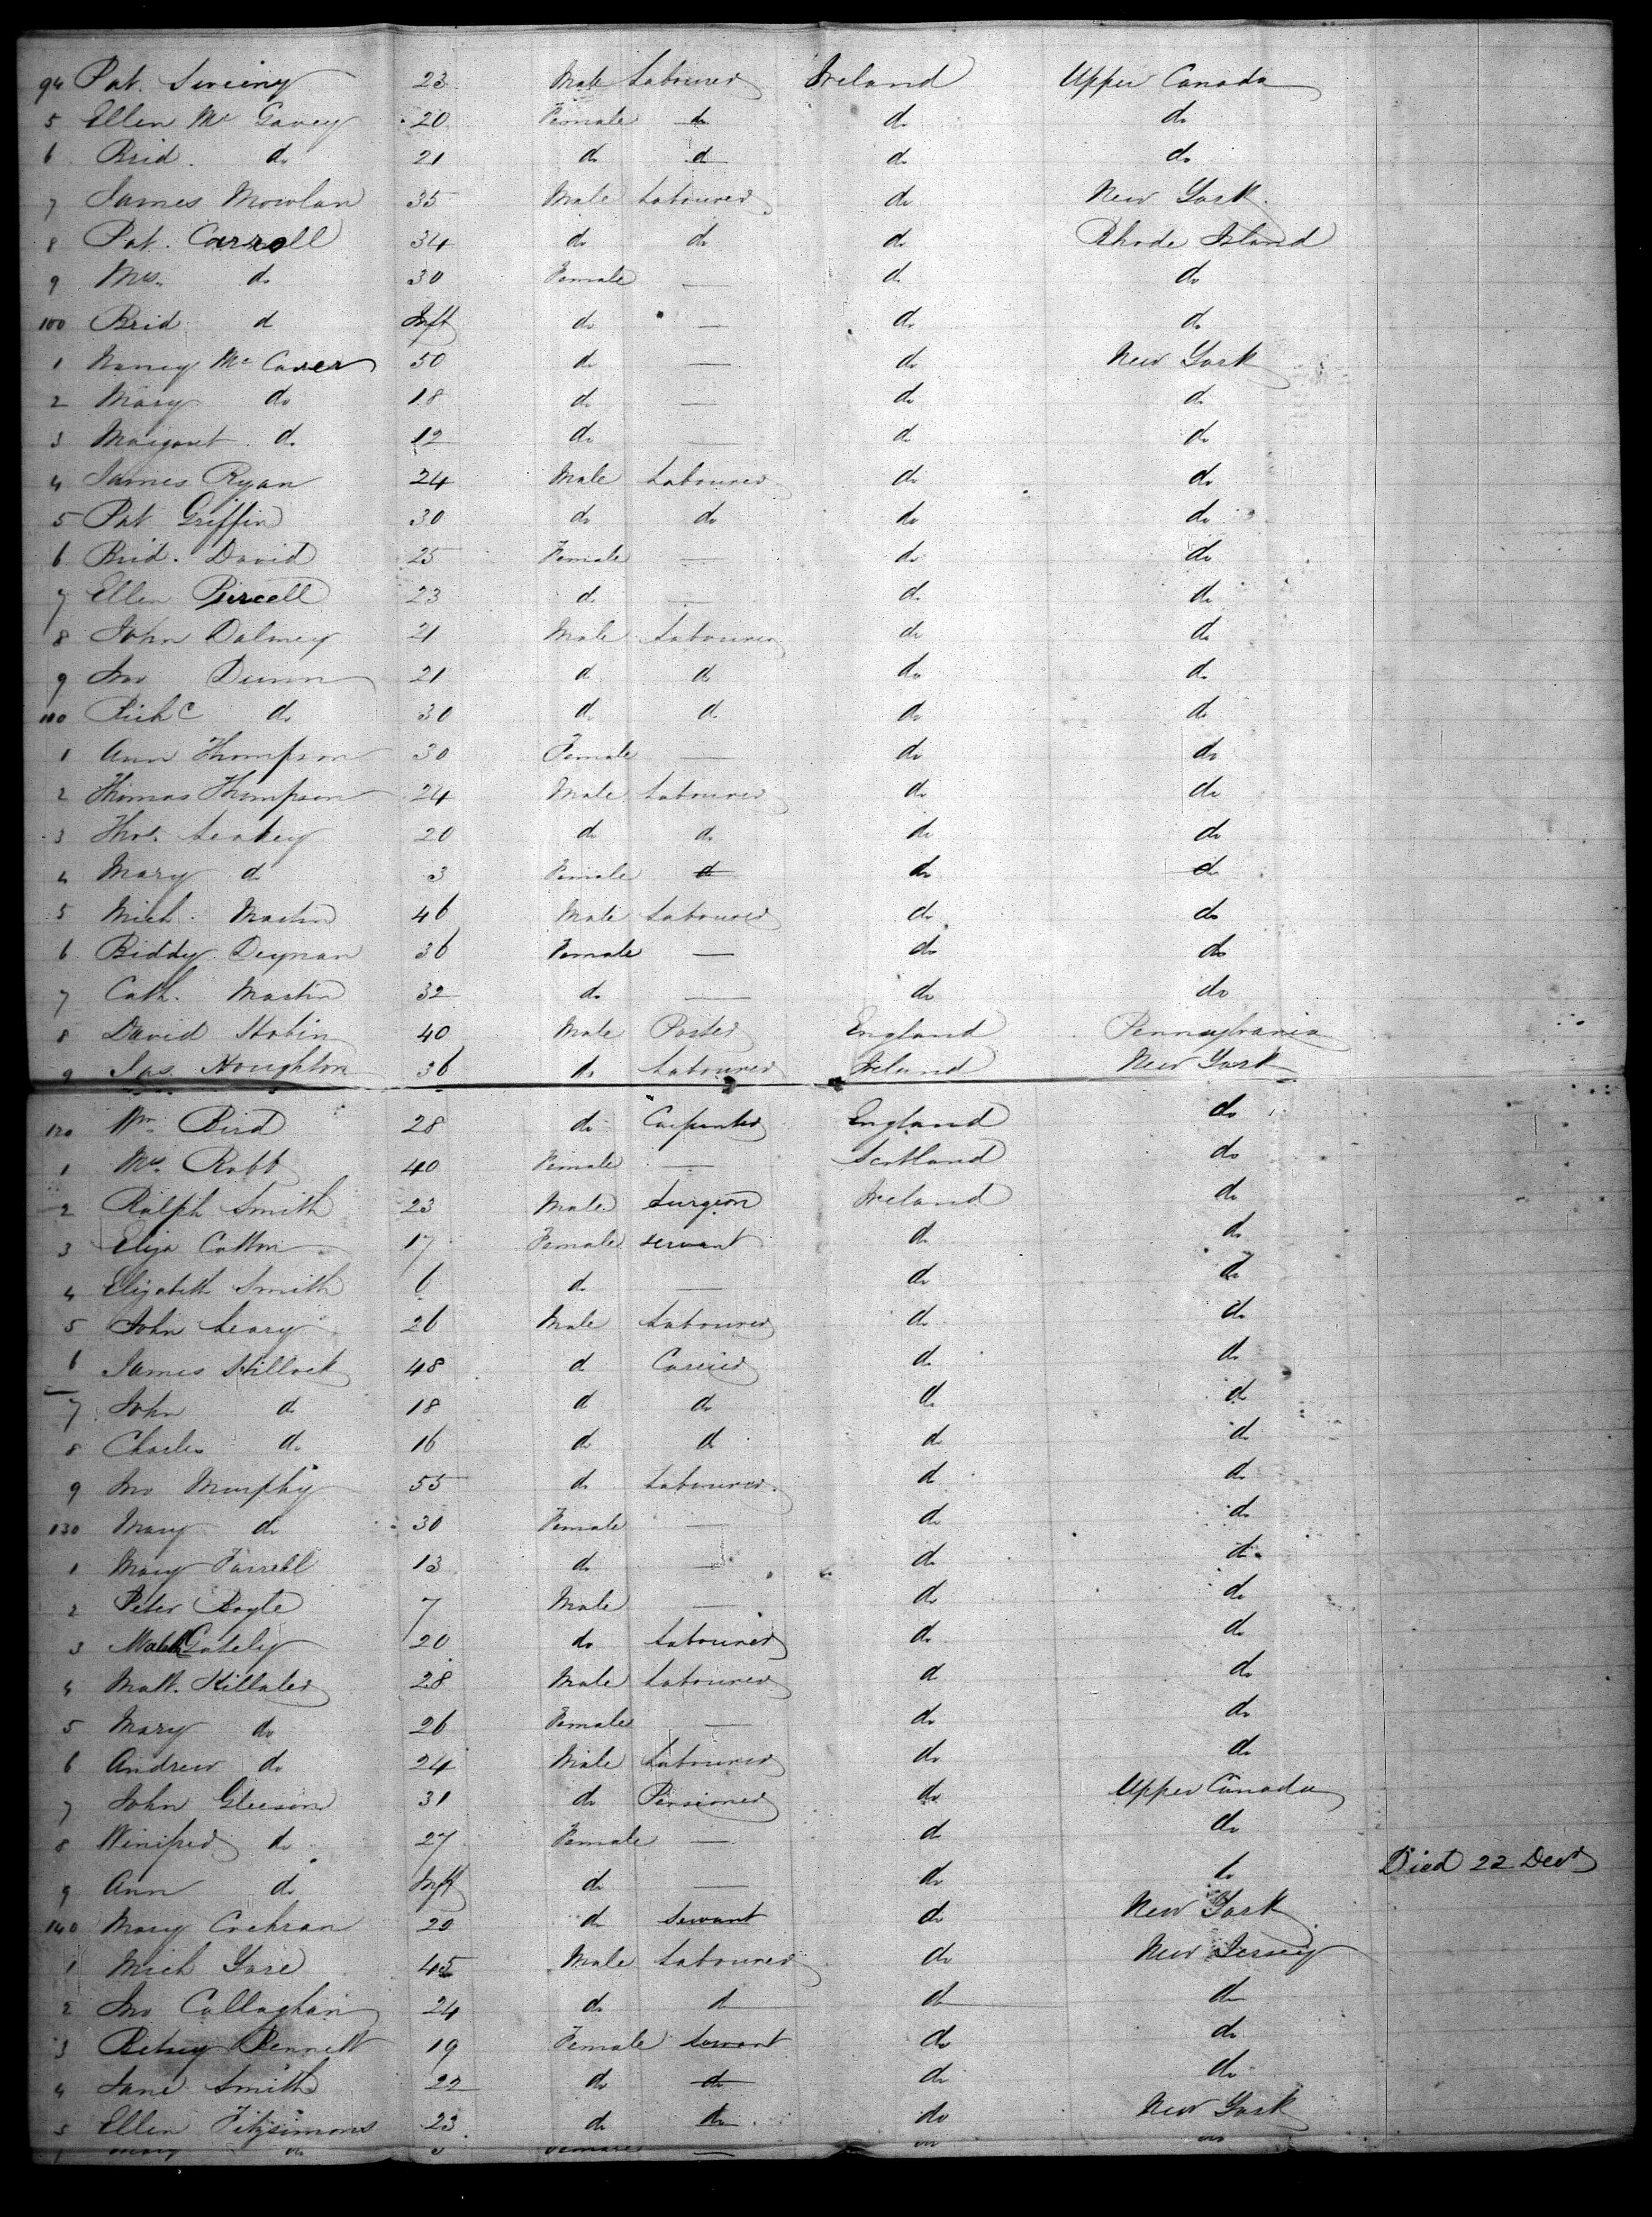 94 Pat. Sweeny 23 Male Labourer Ireland Upper Canada
5 Ellen Mc Gavey 20 Female do do do
6 Brid. do 21 do do do do
7 James Mowlan 35 Male Labourer do New York
8 Pat. Carroll 34 do do do Rhode Island
9 Mrs. do 30 Female — do do
100 Brid do Inft do — do do
1 Nancy Mc Caver 50 do — do New York
2 Mary do 18 do — do do
3 Margaret do 12 do — do do
4 James Ryan 24 Male Labourer do do
5 Pat Griffin 30 do do do do
6 Brid. David 25 Female — do do
7 Ellen Pircell 23 do — do do
8 John Dalmey 21 Male Labourer do do
9 Jno Dunn 21 do do do do
110 Rich do 30 do do do do
1 Ann Thompson 30 Female — do do
2 Thomas Thompson 24 Male Labourer do do
3 Thos. Leahey 20 do do do do
4 Mary do 3 Female do do do
5 Mich. Martin 46 Male Labourer do do
6 Biddy Deynan 36 Female — do do
7 Cath. Martin 32 do — do do
8 David Hobin 40 Male Porter England Pennsylvania
9 Jas. Houghton 36 do Labourer Ireland New York
120 Wm Bird 28 do Carpenter England do
1 Mrs. Robb 40 Female — Scotland do
2 Ralph Smith 23 Male Surgeon Ireland do
3 Eliza Cotton 17 Female servant do do
4 Elizabeth Smith 6 do — do do
5 John Leary 26 Male Labourer do do
6 James Killock 48 do Carrier do do
7 John do 18 do do do do
8 Charles do 16 do do do do
9 Jno Murphy 55 do Labourer do do
130 Mary do 30 Female — do do
1 Mary Farrell 13 do — do do
2 Peter Boyle 7 Male — do do
3 Gately 20 do Labourer do do
4 Matt. Killaler 28 Male Labourer do do
5 Mary do 26 Female — do do
6 Andrew do 24 Male Labourer do do
7 John Gleeson 31 do Pensioner do Upper Canada
8 Winifred do 27 Female — do do
9 Ann do Inft do — do do Died 22 Decr
140 Mary Cochran 20 do Servant do New York
1 Mich Gare 45 Male Labourer do New Jersey
2 Jno Callaghan 24 do do do do
3 Betsey Bennett 19 Female Servant do do
4 Jane Smith 22 do do do do
5 Ellen Fitzsimons 23 do do do New York